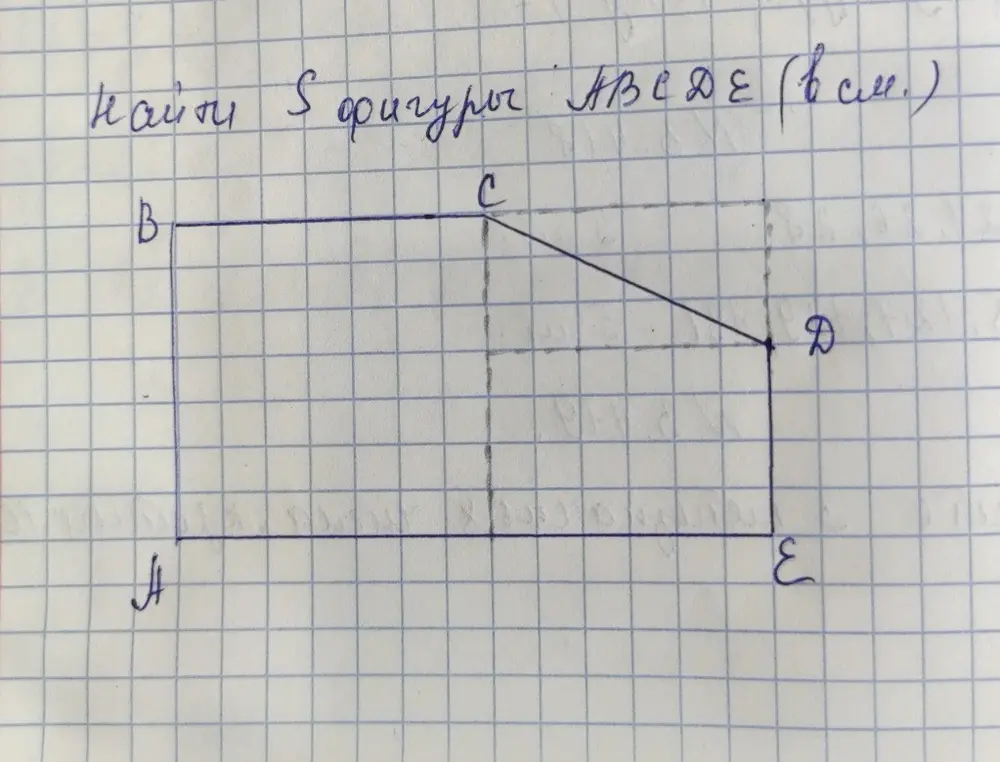 Найти S фигуры ABCDE (в см.)
C
B
D
A
E